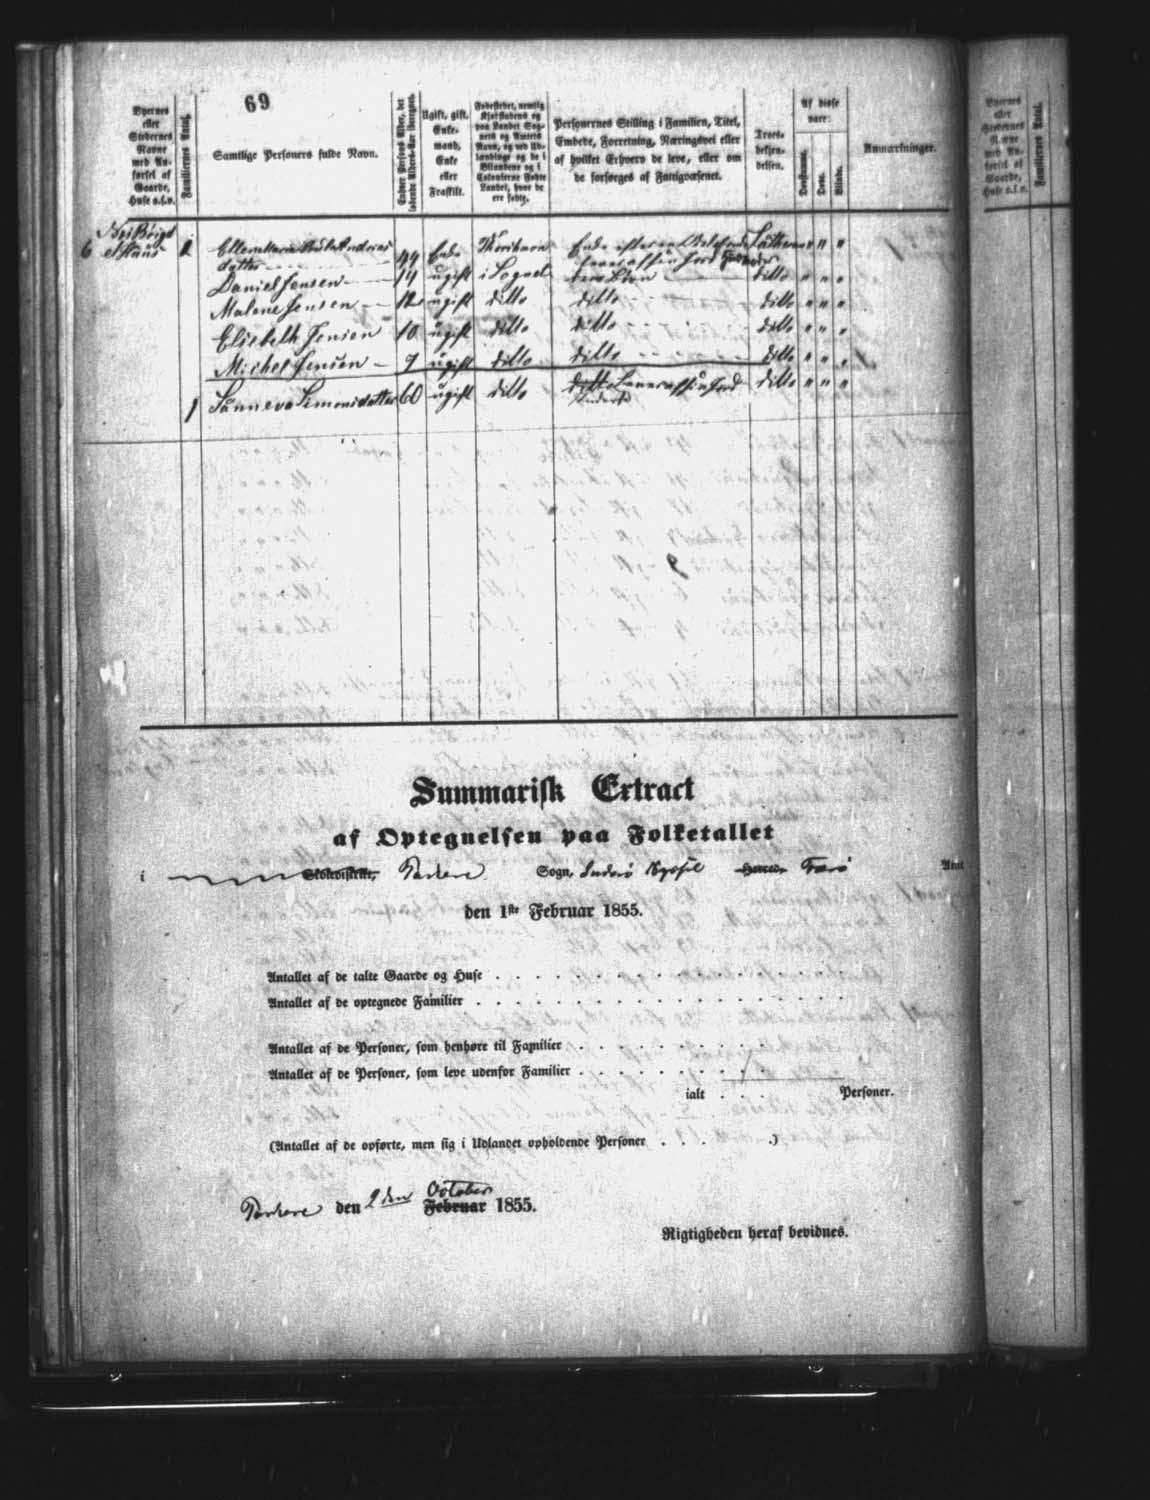 69
Byernes eller Stedernes Navne med Anførsel af Gaarde, Huse o.s.v.
Familiernes Antal.
Samtlige Personers fulde Navn.
Enhver Persons Alder, det løbende Alders-Aar iberegnet.
Ugift, gift, Enkemand, Enke eller Fraskilt.
Fødestedet, nemlig Kjøbstadens og paa Landet Sognets og Amtets Navn, og ved Udlændinge og de i Bilandene og i Colonierne Fødte Landet, hvor de ere fødte.
Personernes Stilling i Familien, Titel, Embede, Forretning, Næringsvei eller af hvilket Erhverv de leve, eller om de forsørges af Fattigvæsenet.
Troesbekjendelsen.
Af disse vare:
Døvstumme.
Døve.
Blinde.
Anmærkninger.
6
1
datter 44 Enke
Daniel Jensen 14 ugift i Sognet ditto " " "
Malene Jensen 12 ugift ditto ditto ditto " " "
Elisbeth Jensen 10 ugift ditto ditto ditto " " "
Michel Jensen 7 ugift ditto ditto ditto " " "
1 Sunneva Simonsdatter 60 ugift ditto ditto ditto " " "
Summarisk Extract
af Optegnelsen paa Folketallet
i Skoledistrikt, Sogn, Suderø Syssel Herred Færø Amt
den 1ste Februar 1855.
Antallet af de talte Gaarde og Huse
Antallet af de optegnede Familier
Antallet af de Personer, som henhøre til Familier
Antallet af de Personer, som leve udenfor Familier
ialt Personer.
(Antallet af de opførte, men sig i Udlandet opholdende Personer .)
October
den 2den Februar 1855.
Rigtigheden heraf bevidnes.